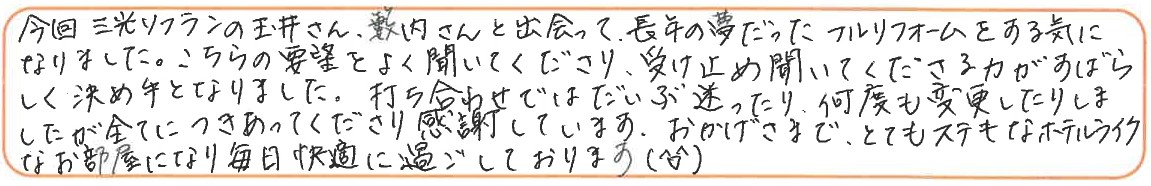 今回 三光ソフランの玉井さん、薮内さんと出会って、長年の夢だったフルリフォームをする気に
なりました。こちらの要望をよく聞いてくださり、受け止め聞いてくださる力がすばら
しく決め手となりました。打ち合わせではだいぶ迷ったり、何度も変更したりしま
したが全てにつきあってくださり感謝しています。おかげさまで、とてもステキなホテルライク
なお部屋になり毎日快適に過ごしております(笑)